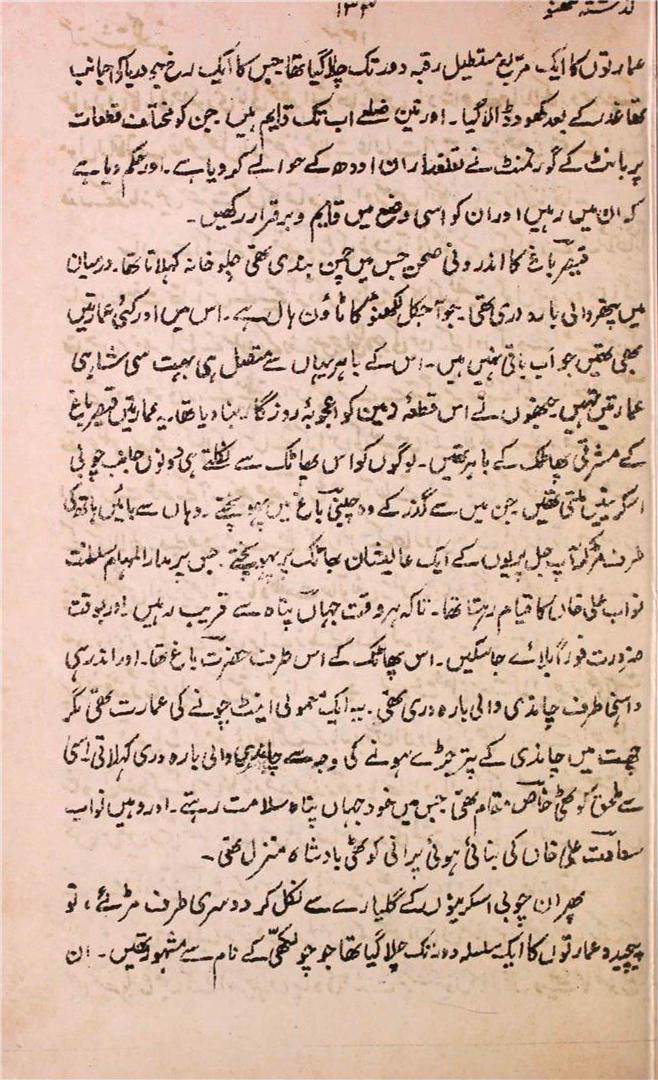 گذشتہ لکھنؤ ۱۳۳
عمارتوں کا ایک مربع مستطیل رقبہ دور تک چلا گیا تھا جس کا ایک رخ جو دریا کی جانب
تھا غدر کے بعد کھود ڈالا گیا۔ اور تین ضلعے اب تک قایم ہیں جن کو مختلف قطعات
پر بانٹ کے گورنمنٹ نے تعلقداران اودھ کے حوالے کر دیا ہے۔ اور حکم دیا ہے
کہ ان میں رہیں اور ان کو اسی وضع میں قایم و برقرار رکھیں۔
قیصر باغ کا اندرونی صحن جس میں چمن بندی تھی جلو خانہ کہلاتا تھا۔ درمیان
میں پتھر والی بارہ دری تھی۔ جو آجکل لکھنؤ کا ٹاؤن ہال ہے۔ اس میں اور کئی عمارتیں
بھی تھیں جو اب باقی نہیں ہیں۔ اس کے باہر یہاں سے متصل ہی بہت سی شاہی
عمارتیں تھیں جنھوں نے اس قطعۂ زمین کو اعجوبۂ روزگار بنا دیا تھا۔ یہ عمارتیں قیصر باغ
کے مشرقی پھاٹک کے باہر تھیں۔ لوگوں کو اس پھاٹک سے نکلتے ہی دونوں جانب چوبی
اسکرینیں ملتی تھیں جن میں سے گذر کے وہ چینی باغ میں پہونچتے۔ وہاں سے بائیں ہاتھ کی
طرف مڑ کر آپ جل پریوں کے ایک عالیشان پھاٹک پر پہونچتے۔ جس پر مدار المہام سلطنت
نواب علی خاں کا قیام رہتا تھا۔ تاکہ ہر وقت جہاں پناہ سے قریب رہیں اور بوقت
ضرورت فوراً بلائے جا سکیں۔ اس پھاٹک کے اس طرف حضرت باغ تھا۔ اور اندر ہی
داہنی طرف چاندی والی بارہ دری تھی۔ یہ ایک معمولی اینٹ چونے کی عمارت تھی مگر
چھت میں چاندی کے پتر جڑے ہونے کی وجہ سے چاندی والی بارہ دری کہلاتی اسی
سے ملحق کوٹھی خاص مقام تھی جس میں خود جہاں پناہ سلامت رہتے۔ اور وہیں نواب
سعادت علی خاں کی بنائی ہوئی پرانی کوٹھی بادشاہ منزل تھی۔
پھر ان چوبی اسکرینوں کے گلیارے سے نکل کر دوسری طرف مڑئے، تو
پیچیدہ عمارتوں کا ایک سلسلہ دور تک چلا گیا تھا جو چو لکھی کے نام سے مشہور تھیں۔ ان